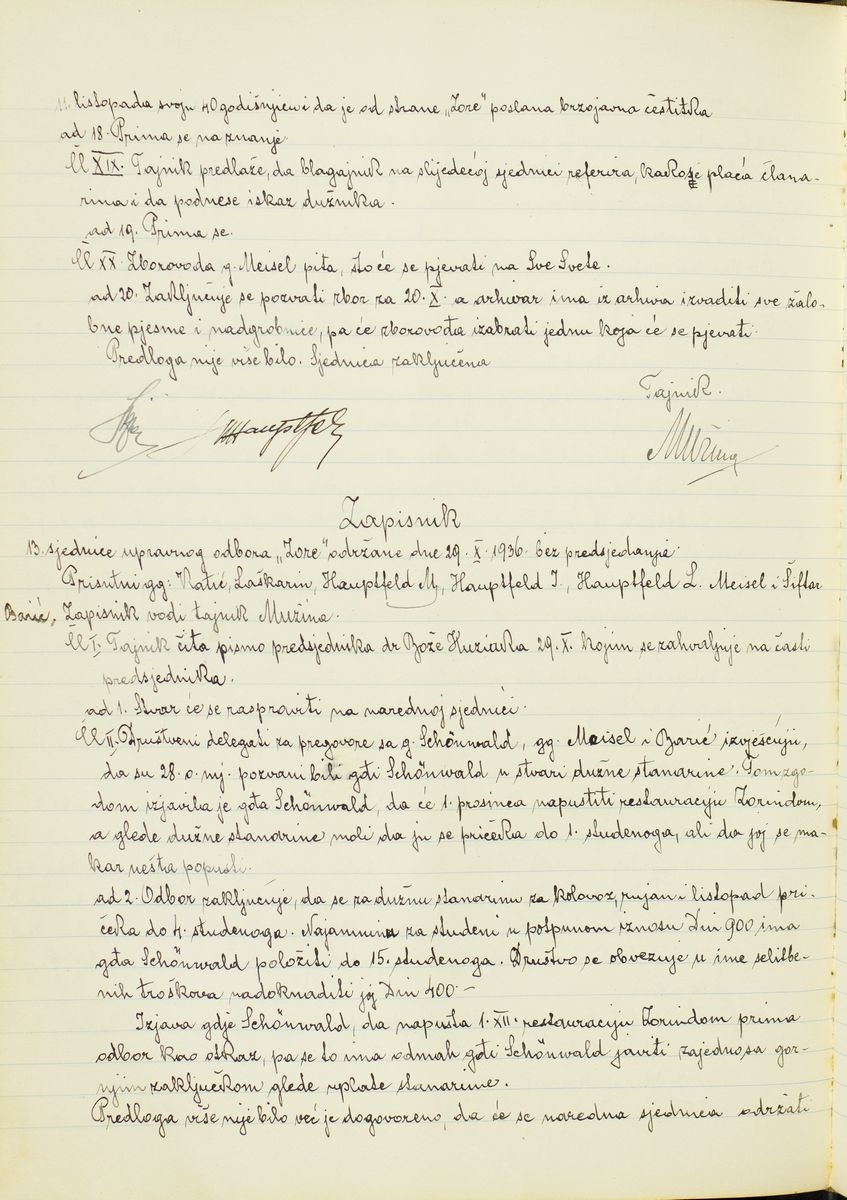 11. listopada svoju 40godišnjicu i da je od strane „Zore" poslana brzojavna čestitka
ad 18. Prima se na znanje.
Čl XIX. Tajnik predlaže, da blagajnik na slijedećoj sjednici referira, kako se plaća člana-
rina i da podnese iskaz dužnika.
ad 19. Prima se.
Čl XX. Zborovođa g. Meisel pita, što će se pjevati na Sve Svete.
ad 20. Zaključuje se pozvati zbor za 20. X. a arhivar ima iz arhiva izvaditi sve žalo-
bne pjesme i nadgrobnice, pa će zborovođa izabrati jednu koja će se pjevati.
Predloga nije više bilo. Sjednica zaključena
Tajnik.
Hauptfeld
Mužina
Zapisnik
13. sjednice upravnog odbora „Zore" održane dne 29. X. 1936. bez predsjedanja.
Prisutni gg: Katić, Laškarin, Hauptfeld M., Hauptfeld I., Hauptfeld L. Meisel i Šiftar
Barić, Zapisnik vodi tajnik Mužina.
Čl I. Tajnik čita pismo predsjednika dr Bože Huziaka 29. X. kojim se zahvaljuje na časti
predsjednika.
ad 1. Stvar će se raspraviti na narednoj sjednici.
Čl II. Društveni delegati za pregovore sa g. Schönwald, gg. Meisel i Barić izvješćuju,
da su 28. o. mj. pozvani bili gđi Schönwald u stvari dužne stanarine. Tom zgo-
dom izjavila je gđa Schönwald, da će 1. prosinca napustiti restauraciju Zorindom,
a glede dužne stanarine moli da ju se pričeka do 1. studenoga, ali da joj se ma-
kar nešta popusti.
ad 2. Odbor zaključuje, da se za dužnu stanarinu za kolovoz, rujan i listopad pri-
čeka do 4. studenoga. Najamnina za studeni u potpunom iznosu Din 900 ima
gđa Schönwald položiti do 15. studenoga. Društvo se obvezuje u ime selitbe-
nih troškova nadoknaditi joj Din 400.-
Izjava gdje Schönwald, da napušta 1. XII. restauraciju Zorindom prima
odbor kao otkaz, pa se to ima odmah gđi Schönwald javiti zajedno sa gor-
njim zaključkom glede uplate stanarine.
Predloga više nije bilo već je dogovoreno, da će se naredna sjednica održati